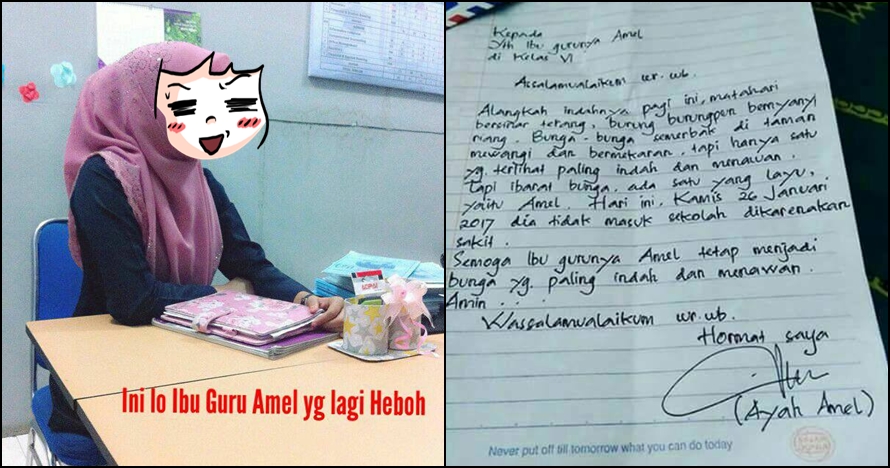 Ini lo Ibu Guru Amel yg lagi Heboh
Kepada
Yth Ibu gurunya Amel
di Kelas VI
Assalamualaikum wr. wb.
Alangkah indahnya pagi ini, matahari
bersinar terang, burung burungpun bernyanyi
riang. Bunga-bunga semerbak di taman
mewangi dan bermekaran, tapi hanya satu
yg. terlihat paling indah dan menawan.
Tapi ibarat bunga, ada satu yang layu,
yaitu Amel. Hari ini, Kamis 26 Januari
2017 dia tidak masuk sekolah dikarenakan
sakit.
Semoga Ibu gurunya Amel tetap menjadi
bunga yg. paling indah dan menawan.
Amin . . .
Wassalamualaikum wr. wb.
Hormat saya
(Ayah Amel)
Never put off till tomorrow what you can do today